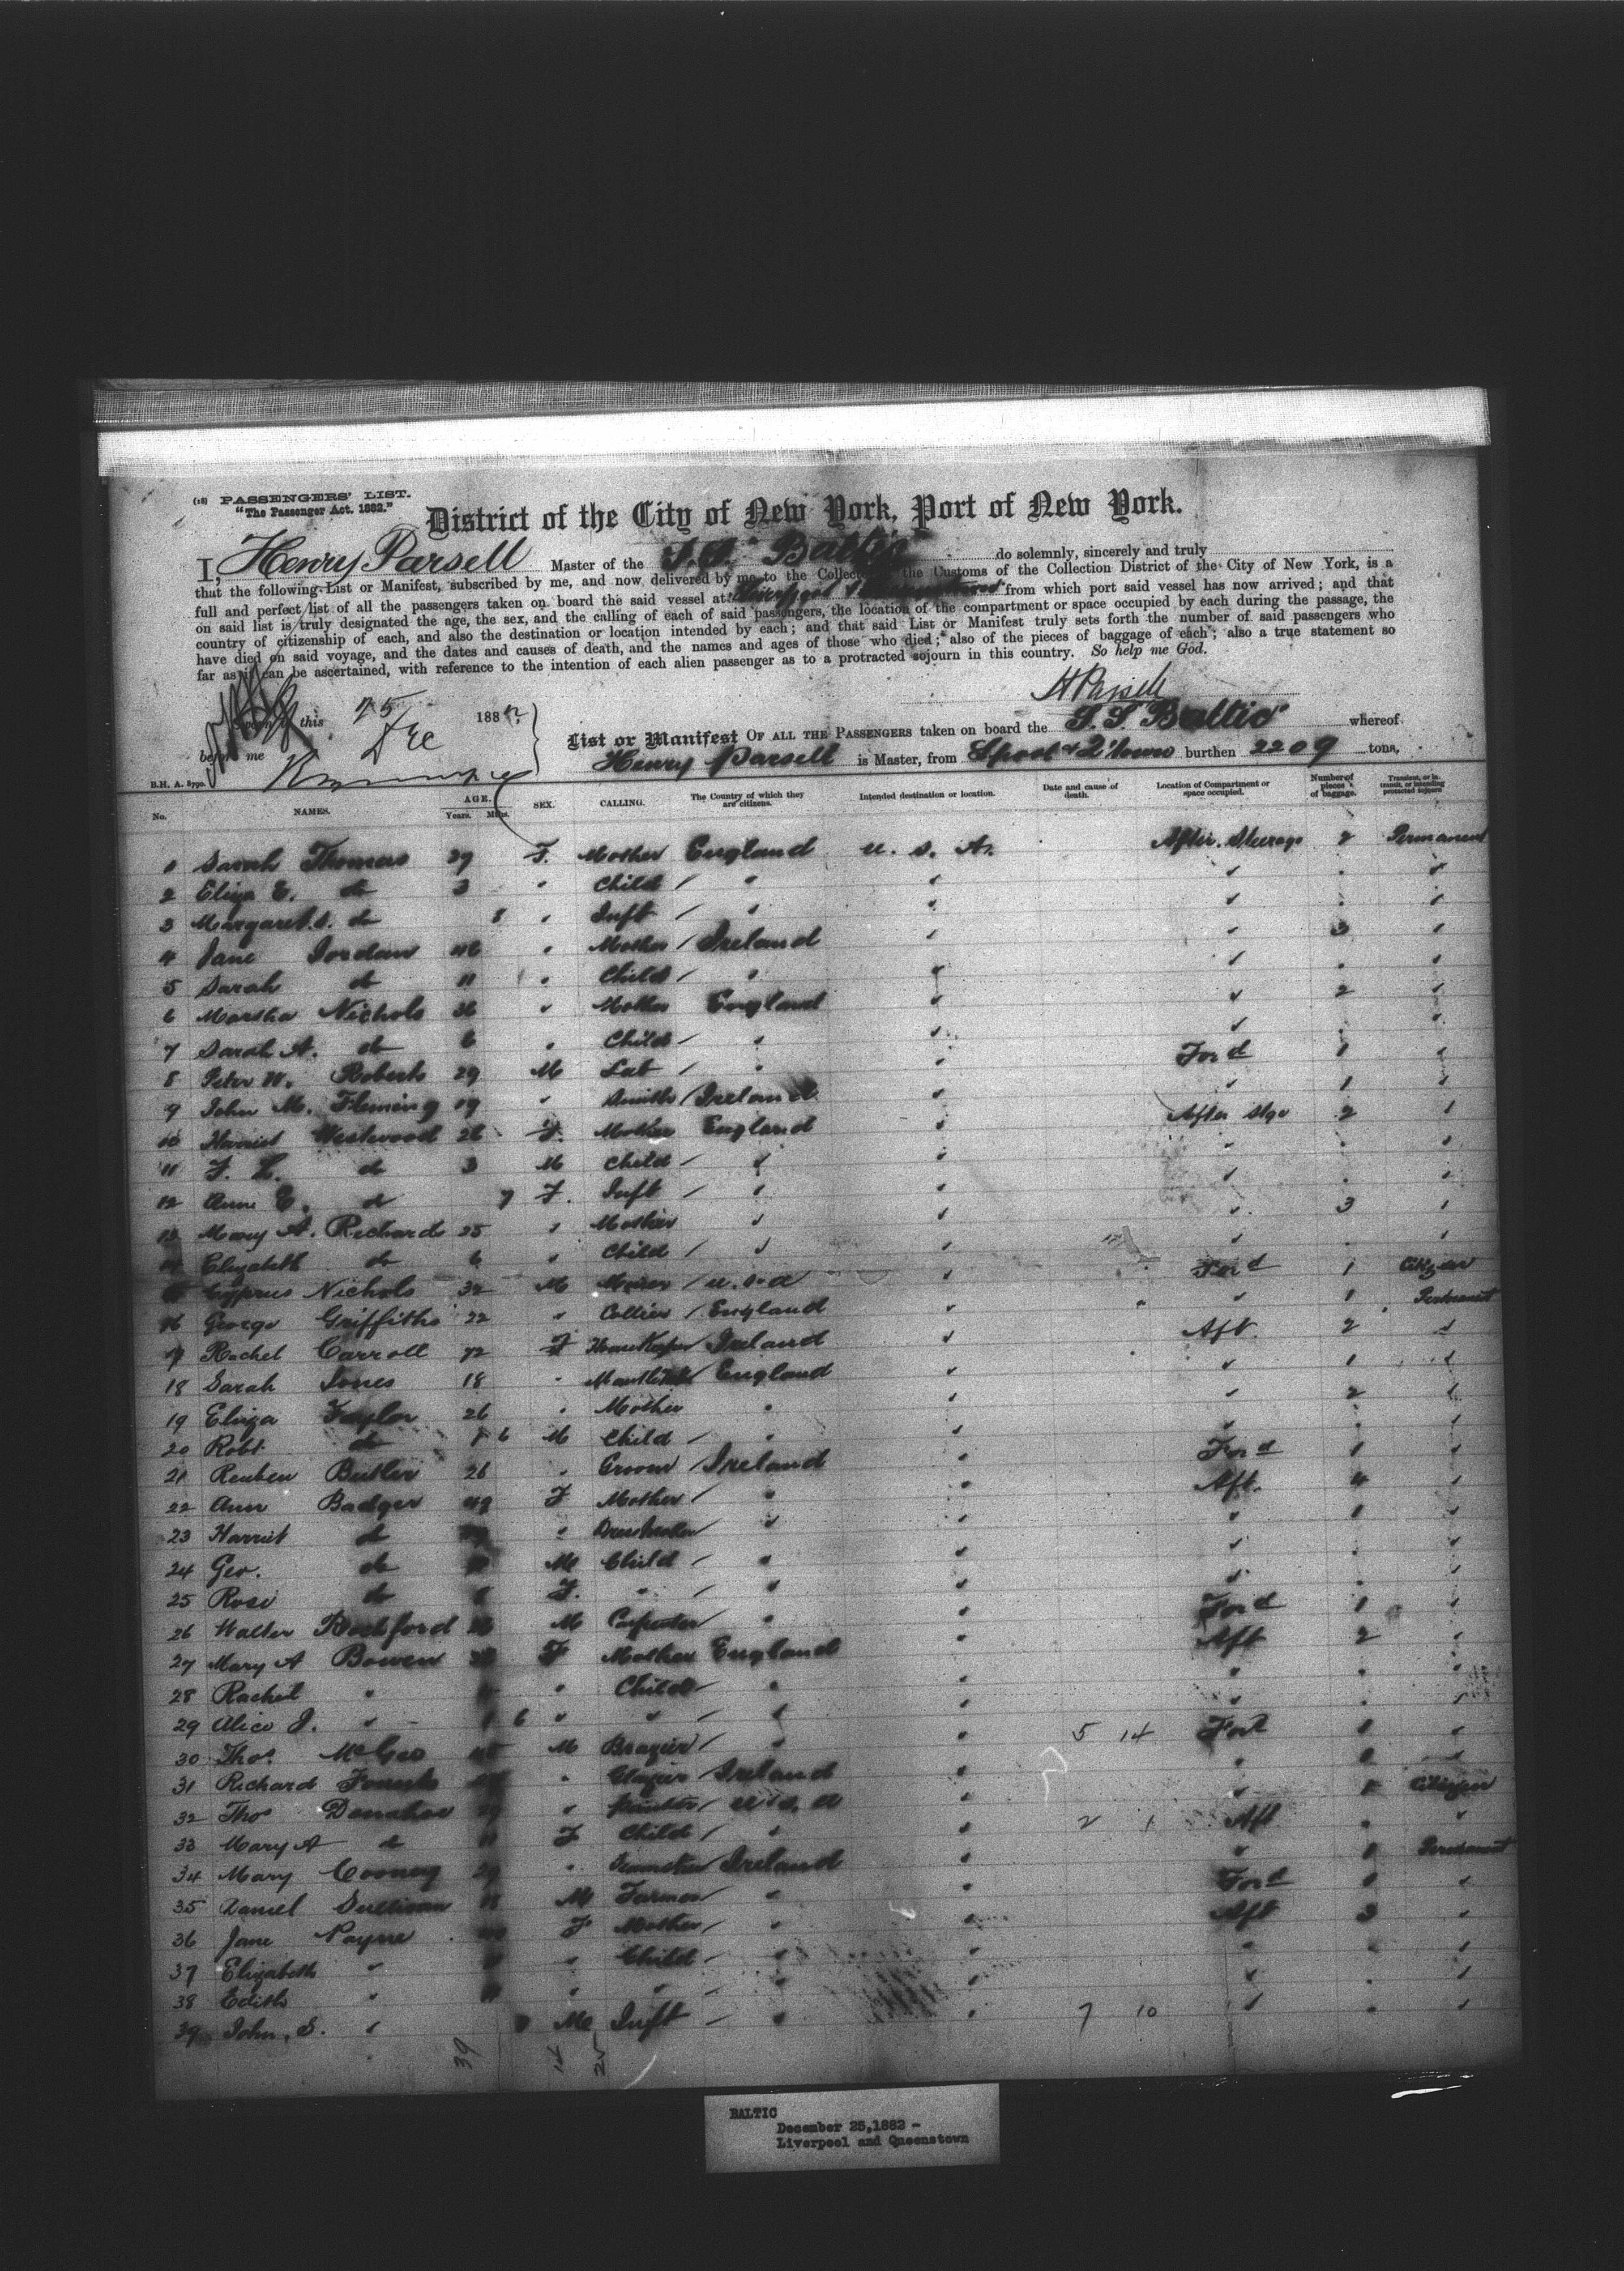 (18) PASSENGERS' LIST.
"The Passenger Act. 1882."
District of the City of New York, Port of New York.
I, Henry Parsell Master of the S.S. "Baltic" do solemnly, sincerely and truly
that the following List or Manifest, subscribed by me, and now delivered by me to the Collector of the Customs of the Collection District of the City of New York, is a
full and perfect list of all the passengers taken on board the said vessel at Liverpool from which port said vessel has now arrived; and that
on said list is truly designated the age, the sex, and the calling of each of said passengers, the location of the compartment or space occupied by each during the passage, the
country of citizenship of each, and also the destination or location intended by each; and that said List or Manifest truly sets forth the number of said passengers who
have died on said voyage, and the dates and causes of death, and the names and ages of those who died; also of the pieces of baggage of each; also a true statement so
far as it can be ascertained, with reference to the intention of each alien passenger as to a protracted sojourn in this country. So help me God.
H Parsell
this 25 Dec 1882
before me
List or Manifest OF ALL THE PASSENGERS taken on board the S.S. Baltic whereof
Henry Parsell is Master, from Lpool & Q'town burthen 2209 tons,
B.H. A. 8790.
No. NAMES. AGE. Years. Mths. SEX. CALLING. The Country of which they are citizens. Intended destination or location. Date and cause of death. Location of Compartment or space occupied. Number of pieces of baggage. Transient, or in transit, or intending protracted sojourn
1 Sarah Thomas 29 F. Mother England U. S. A. After. Steerage 2 Permanent
2 Eliza E. do 3 " Child / "
3 Margaret S. do 8 " Inft / "
4 Jane Jordan 46 " Mother / Ireland 3
5 Sarah do 11 " Child / "
6 Martha Nichols 36 " Mother England 2
7 Sarah A. do 6 " Child / "
8 Peter W. Roberts 29 M Lab / " For'd 1
9 John M. Fleming 19 " Smith / Ireland 1
10 Harriet Westwood 26 F. Mother England After Stge 2
11 F. L. do 3 M Child / "
12 Ann E. do 7 F. Inft / "
13 Mary A. Richards 25 " Mother " 3
14 Elizabeth do 6 " Child / "
15 Cyprus Nichols 32 M Miner / U.S.A For'd 1 Citizen
16 George Griffiths 22 " Collier / England 1 Permanent
17 Rachel Carroll 72 F HouseKeeper Ireland Aft. 2
18 Sarah Jones 18 " England 1
19 Eliza Taylor 26 " Mother " 2
20 Robt. do 1 6 M Child / "
21 Reuben Butler 26 " Groom / Ireland For'd 1
22 Ann Badger 49 F Mother / " Aft. 4
23 Harriet do " Dressmaker " 1
24 Geo. do M Child / "
25 Rose do F. " / "
26 Walter Rochford M Carpenter " For'd 1
27 Mary A Bowen F Mother England Aft 2
28 Rachel " " Child "
29 Alice J. " 6 " " / "
30 Thos. McGee M Brazier / " 5 14 For'd 1
31 Richard " Glazier / Ireland 1
32 Thos Donahoe " Painter / U.S.A 1 Citizen
33 Mary A do 11 F Child / " 2 1 Aft
34 Mary Cooney 29 " Ireland 1 Permanent
35 Daniel Sullivan M Farmer " For'd 1
36 Jane Payne F Mother / " Aft 3
37 Elizabeth " " Child "
38 Edith " " " "
39 John. S. " M Inft " 7 10
39 14 25
BALTIC
December 25, 1882 -
Liverpool and Queenstown